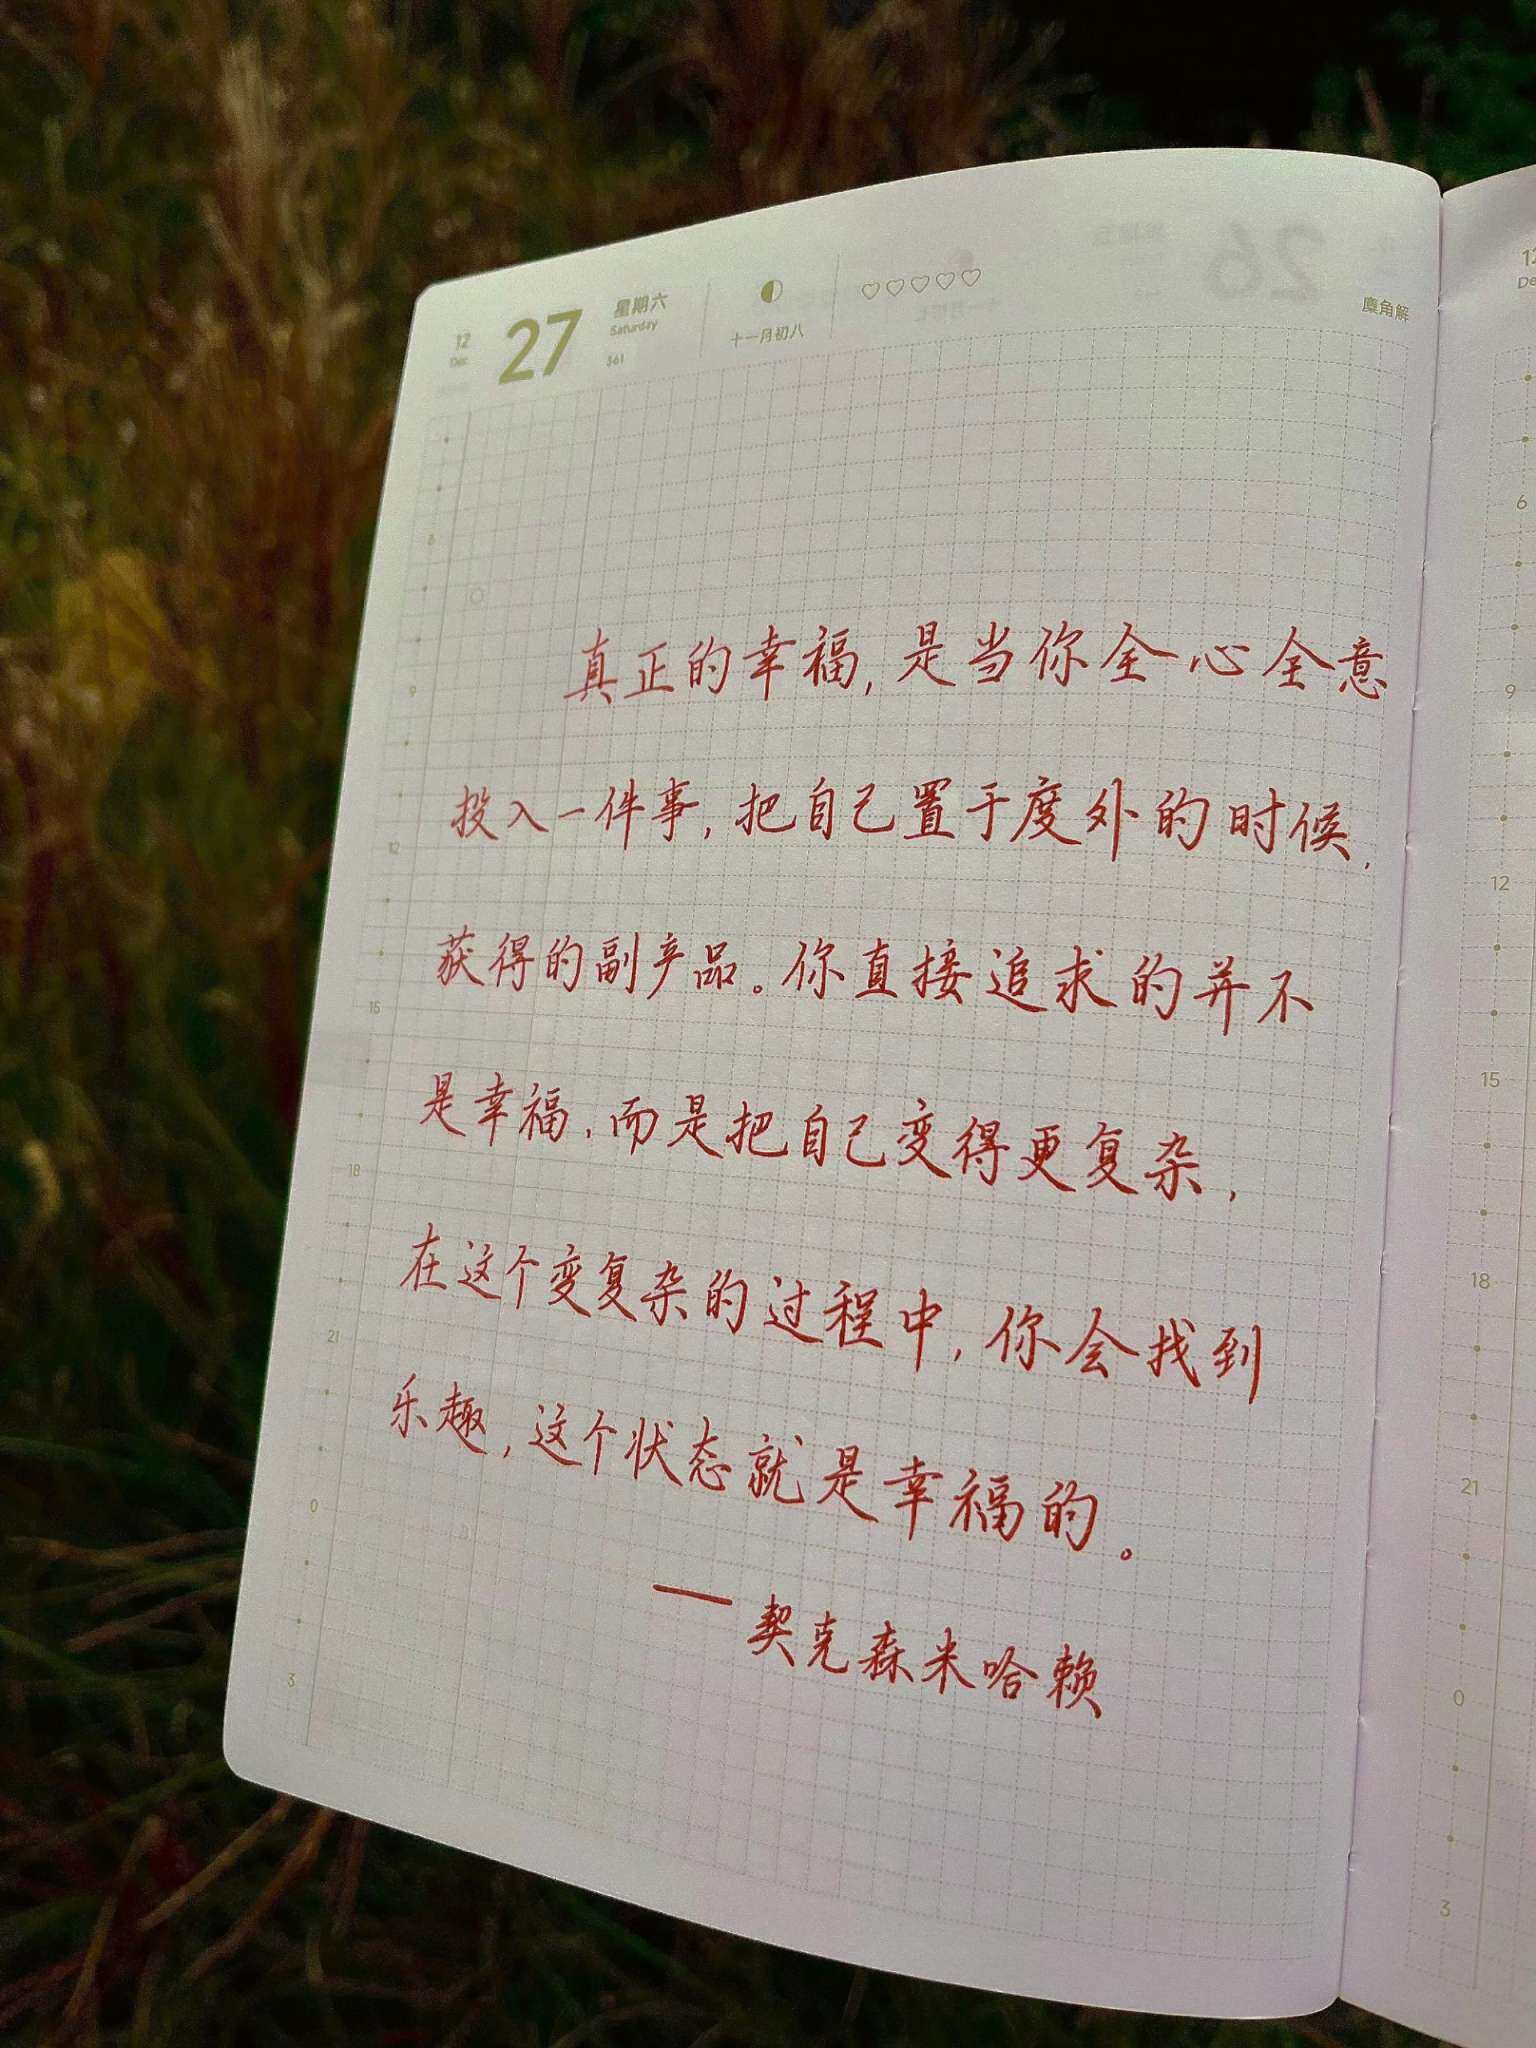 12
Dec
27
星期六
Saturday
361
十一月初八
麋角解
真正的幸福,是当你全心全意
投入一件事,把自己置于度外的时候,
获得的副产品。你直接追求的并不
是幸福,而是把自己变得更复杂,
在这个变复杂的过程中,你会找到
乐趣,这个状态就是幸福的。
——契克森米哈赖
6
9
12
15
18
21
0
3
12
De
6
9
12
15
18
21
0
3